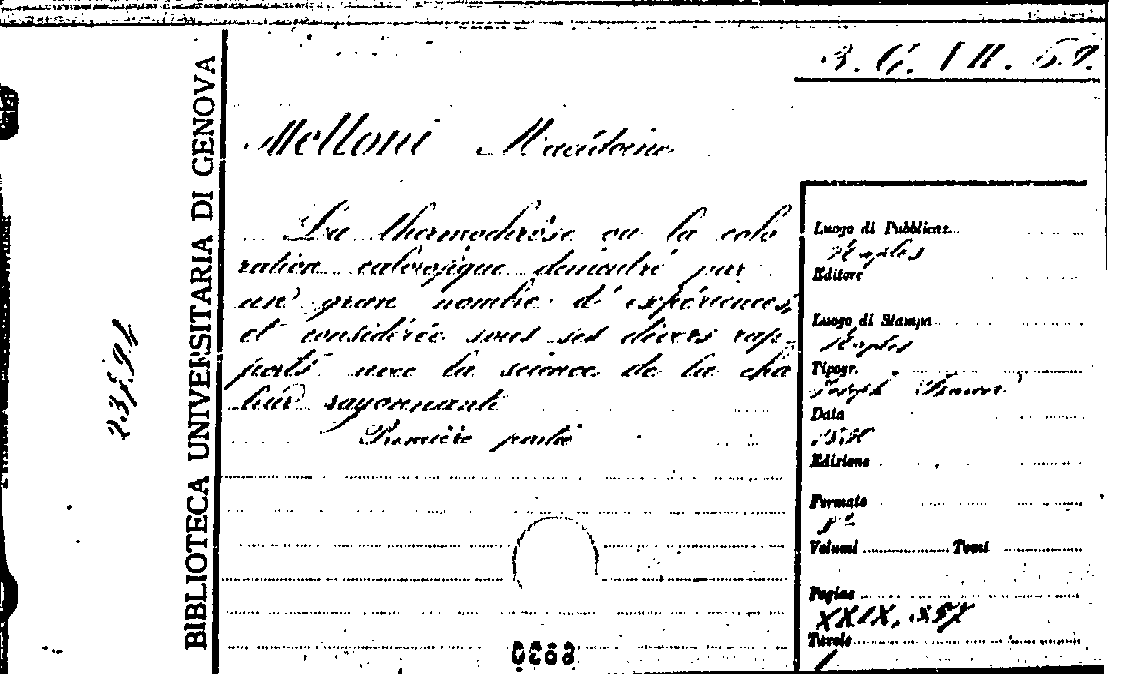 3. G. VII. 69.
BIBLIOTECA UNIVERSITARIA DI GENOVA
Melloni Macedonio
La thermochrôse ou la colo
ration calorifique démontré par
un gran nombre d'expériences,
et considérée sous ses divers rap-
ports avec la science de la cha
leur rayonnante
Première partie
Luogo di Pubblicaz.
Naples
Editore
Luogo di Stampa
Naples
Tipogr.
Joseph
Data
Edizione
Formato
8º
Volumi Tomi
Pagine
XXIX, 357
Tavole
1